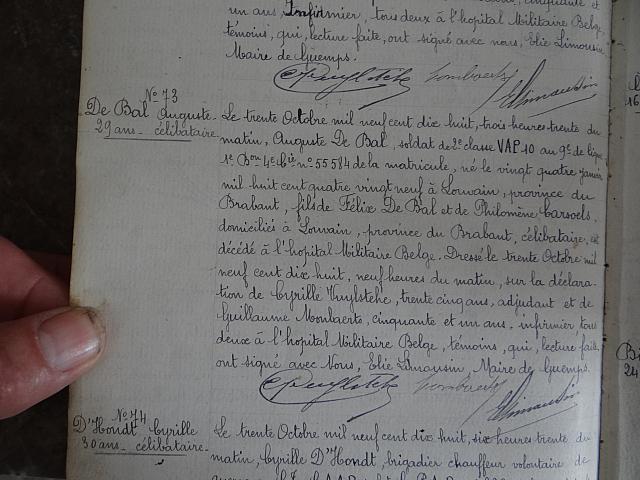 un ans, Infirmier, tous deux à l'hopital Militaire Belge,
témoins, qui, lecture faite, ont signé avec nous, Elie Limousin
Maire de Guemps.
N° 73
De Bal Auguste
29 ans célibataire
Le trente Octobre mil neuf cent dix huit, trois heures trente du
matin, Auguste De Bal, soldat de 2e classe VAP 10 au 9e de ligne
1e Bon 4e Cie n° 55584 de la matricule, né le vingt quatre janvier
mil huit cent quatre vingt neuf à Louvain, province du
Brabant, fils de Félix De Bal et de Philomène Carsoels,
domiciliés à Louvain, province du Brabant, célibataire, est
décédé à l'hopital Militaire Belge. Dressé le trente Octobre mil
neuf cent dix huit, neuf heures du matin, sur la déclara-
tion de Cyrille Vuylsteke, trente cinq ans, adjudant et de
Guillaume Mombaerts, cinquante et un ans, infirmier, tous
deux à l'hopital Militaire Belge, témoins, qui, lecture faite
ont signé avec Nous, Elie Limousin, Maire de Guemps.
N° 74
D'Hondt Cyrille
30 ans célibataire
Le trente Octobre mil neuf cent dix huit, six heures trente du
matin, Cyrille D'Hondt, brigadier chauffeur volontaire de